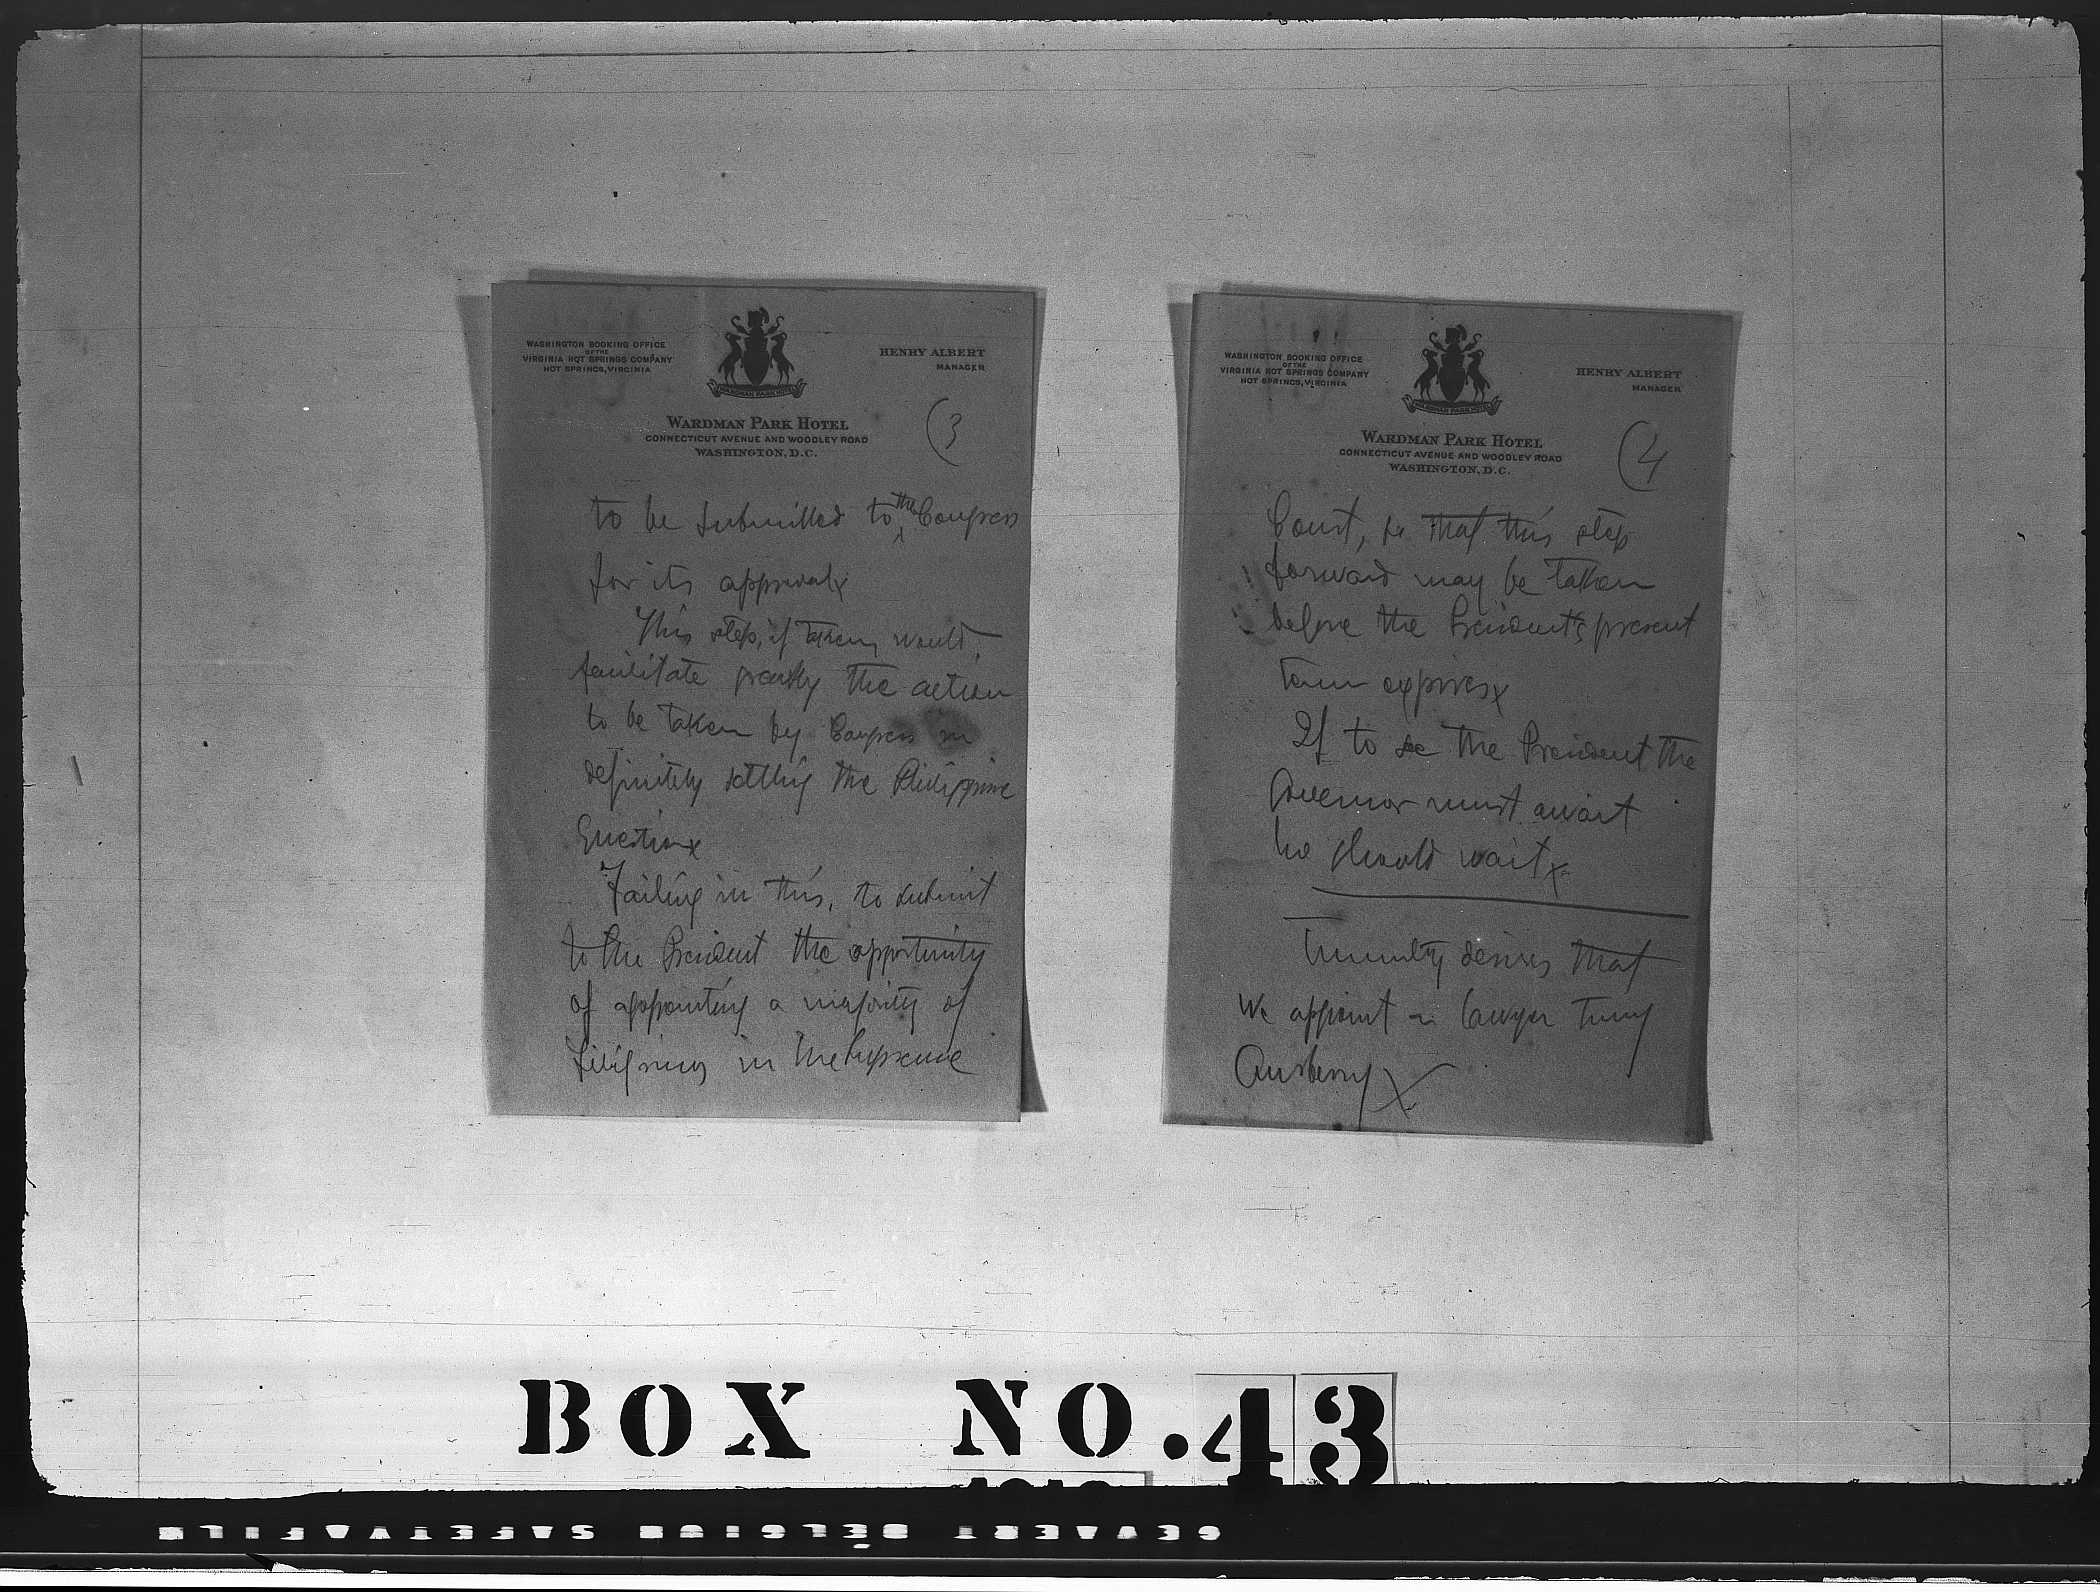 WASHINGTON BOOKING OFFICE
OF THE
VIRGINIA HOT SPRINGS COMPANY
HOT SPRINGS, VIRGINIA
HENRY ALBERT
MANAGER
WARDMAN PARK HOTEL
WARDMAN PARK HOTEL
CONNECTICUT AVENUE AND WOODLEY ROAD
WASHINGTON, D.C.
(3
to be submitted to the Congress
for its approval x
This step, if taken, would
facilitate greatly the action
to be taken by Congress in
definitely settling the Philippine
Question x
Failing in this, to submit
to the President the opportunity
of appointing a majority of
Filipinos in the Supreme
WASHINGTON BOOKING OFFICE
OF THE
VIRGINIA HOT SPRINGS COMPANY
HOT SPRINGS, VIRGINIA
HENRY ALBERT
MANAGER
WARDMAN PARK HOTEL
WARDMAN PARK HOTEL
CONNECTICUT AVENUE AND WOODLEY ROAD
WASHINGTON, D.C.
(4
Court, so that this step
forward may be taken
before the President's present
term expires x
If to see the President the
Governor must await
he should wait x
desires that
we appoint a lawyer
BOX NO. 43
GEVAERT BELGIUM SAFETY FILM